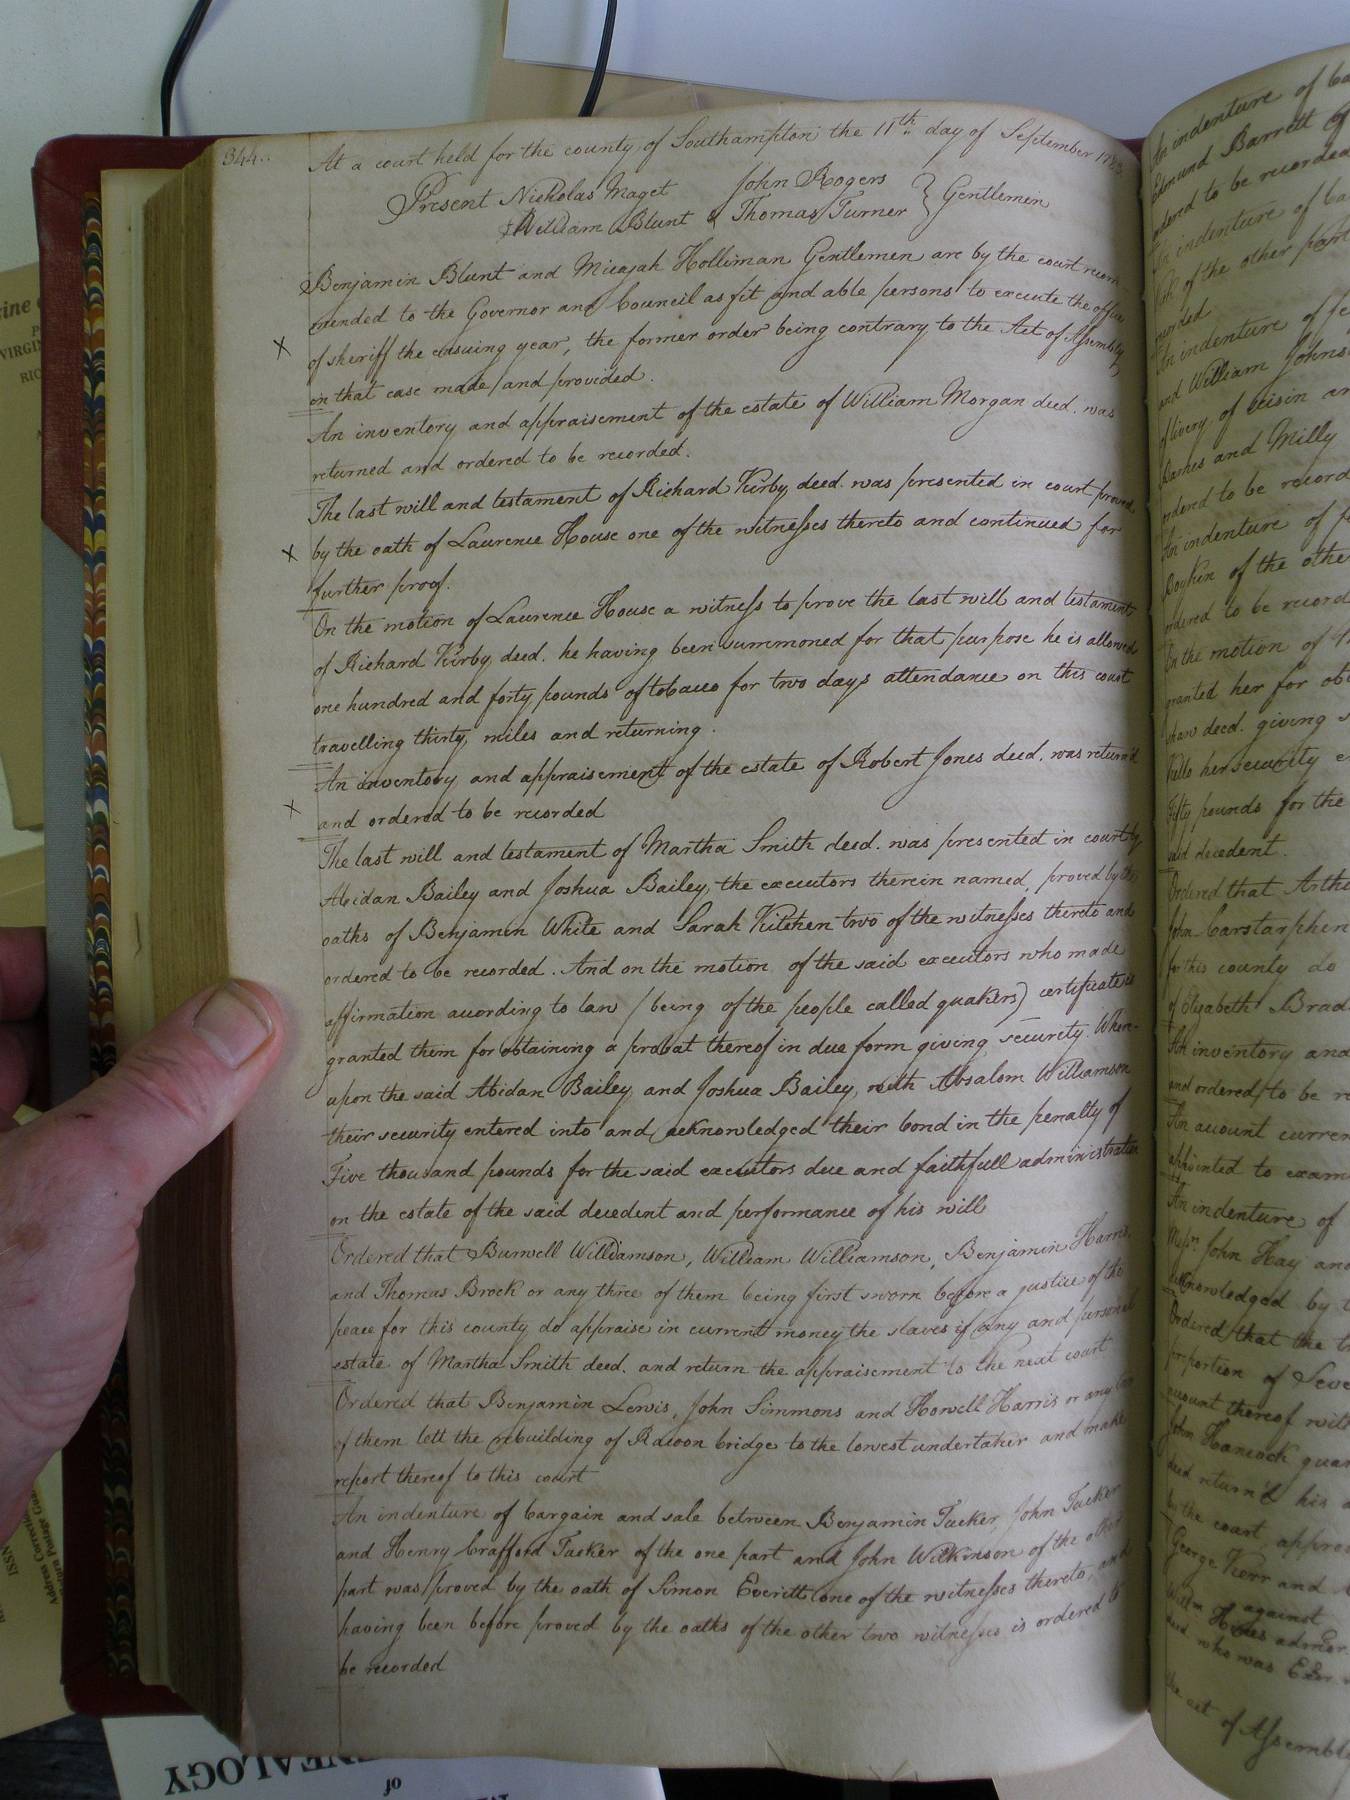 344..
At a court held for the county of Southampton the 11th day of September
Present Nicholas Maget John Rogers
William Blunt & Thomas Turner } Gentlemen
Benjamin Blunt and Micajah Holliman Gentlemen are by the court recom-
mended to the Governor and Council as fit and able persons to execute the office
of sheriff the ensuing year, the former order being contrary to the Act of Assembly
X
in that case made and provided.
An inventory and appraisement of the estate of William Morgan deed. was
returned and ordered to be recorded.
The last will and testament of Richard Kirby, deed. was presented in court proved
by the oath of Laurence House one of the witnesses thereto and continued for
X
further proof.
On the motion of Laurence House a witness to prove the last will and testament
of Richard Kirby, deed. he having been summoned for that purpose he is allowed
one hundred and forty pounds of tobacco for two days attendance on this court
travelling thirty miles and returning.
An inventory and appraisement of the estate of Robert Jones deed. was return'd
X
and ordered to be recorded
The last will and testament of Martha Smith deed. was presented in court by
Abidan Bailey and Joshua Bailey, the executors therein named, proved by the
oaths of Benjamin White and Sarah Kitchen two of the witnesses thereto and
ordered to be recorded. And on the motion of the said executors who made
affirmation according to law (being of the people called quakers) certificate is
granted them for obtaining a probat thereof in due form giving security. Where-
upon the said Abidan Bailey, and Joshua Bailey, with Absalom Williamson
their security entered into and acknowledged their bond in the penalty of
Five thousand pounds for the said executors due and faithfull administration
on the estate of the said decedent and performance of his will
Ordered that Burwell Williamson, William Williamson, Benjamin Harris,
and Thomas Brock or any three of them being first sworn before a justice of the
peace for this county do appraise in current money the slaves if any and personal
estate of Martha Smith deed. and return the appraisement to the next court
Ordered that Benjamin Lewis, John Simmons and Howell Harris or any two
of them lett the rebuilding of Racoon bridge to the lowest undertaker and make
report thereof to this court
An indenture of bargain and sale between Benjamin Tucker, John Tucker
and Henry Crafford Tucker of the one part and John Wilkinson of the other
part was proved by the oath of Simon Everitt one of the witnesses thereto, and
having been before proved by the oaths of the other two witnesses is ordered to
be recorded
An indenture of
Edmund Barrett
ordered to be recorded
An indenture of
of the other part
recorded
An indenture of
and William Johns
livery of seisin
and Milly
ordered to be record
An indenture of
of the othe
ordered to be record
On the motion of
granted her for
deed. giving
her security
Fifty pounds for the
said decedent.
Ordered that Arthu
John Carstarphen
for this county do
of Elizabeth Brad
An inventory and
and ordered to be re
An account curren
appointed to exam
An indenture of
Messrs. John Hay and
acknowledged by
Ordered that the
proportion of Seve
account thereof with
John Hancock guar
deed return'd his
by the court, appro
George Kerr and
against
Hines admor.
deed. who was Exer.
the act of Assembly
VIRGIN
GENEALOGY
of
ISSN
Address Correcti